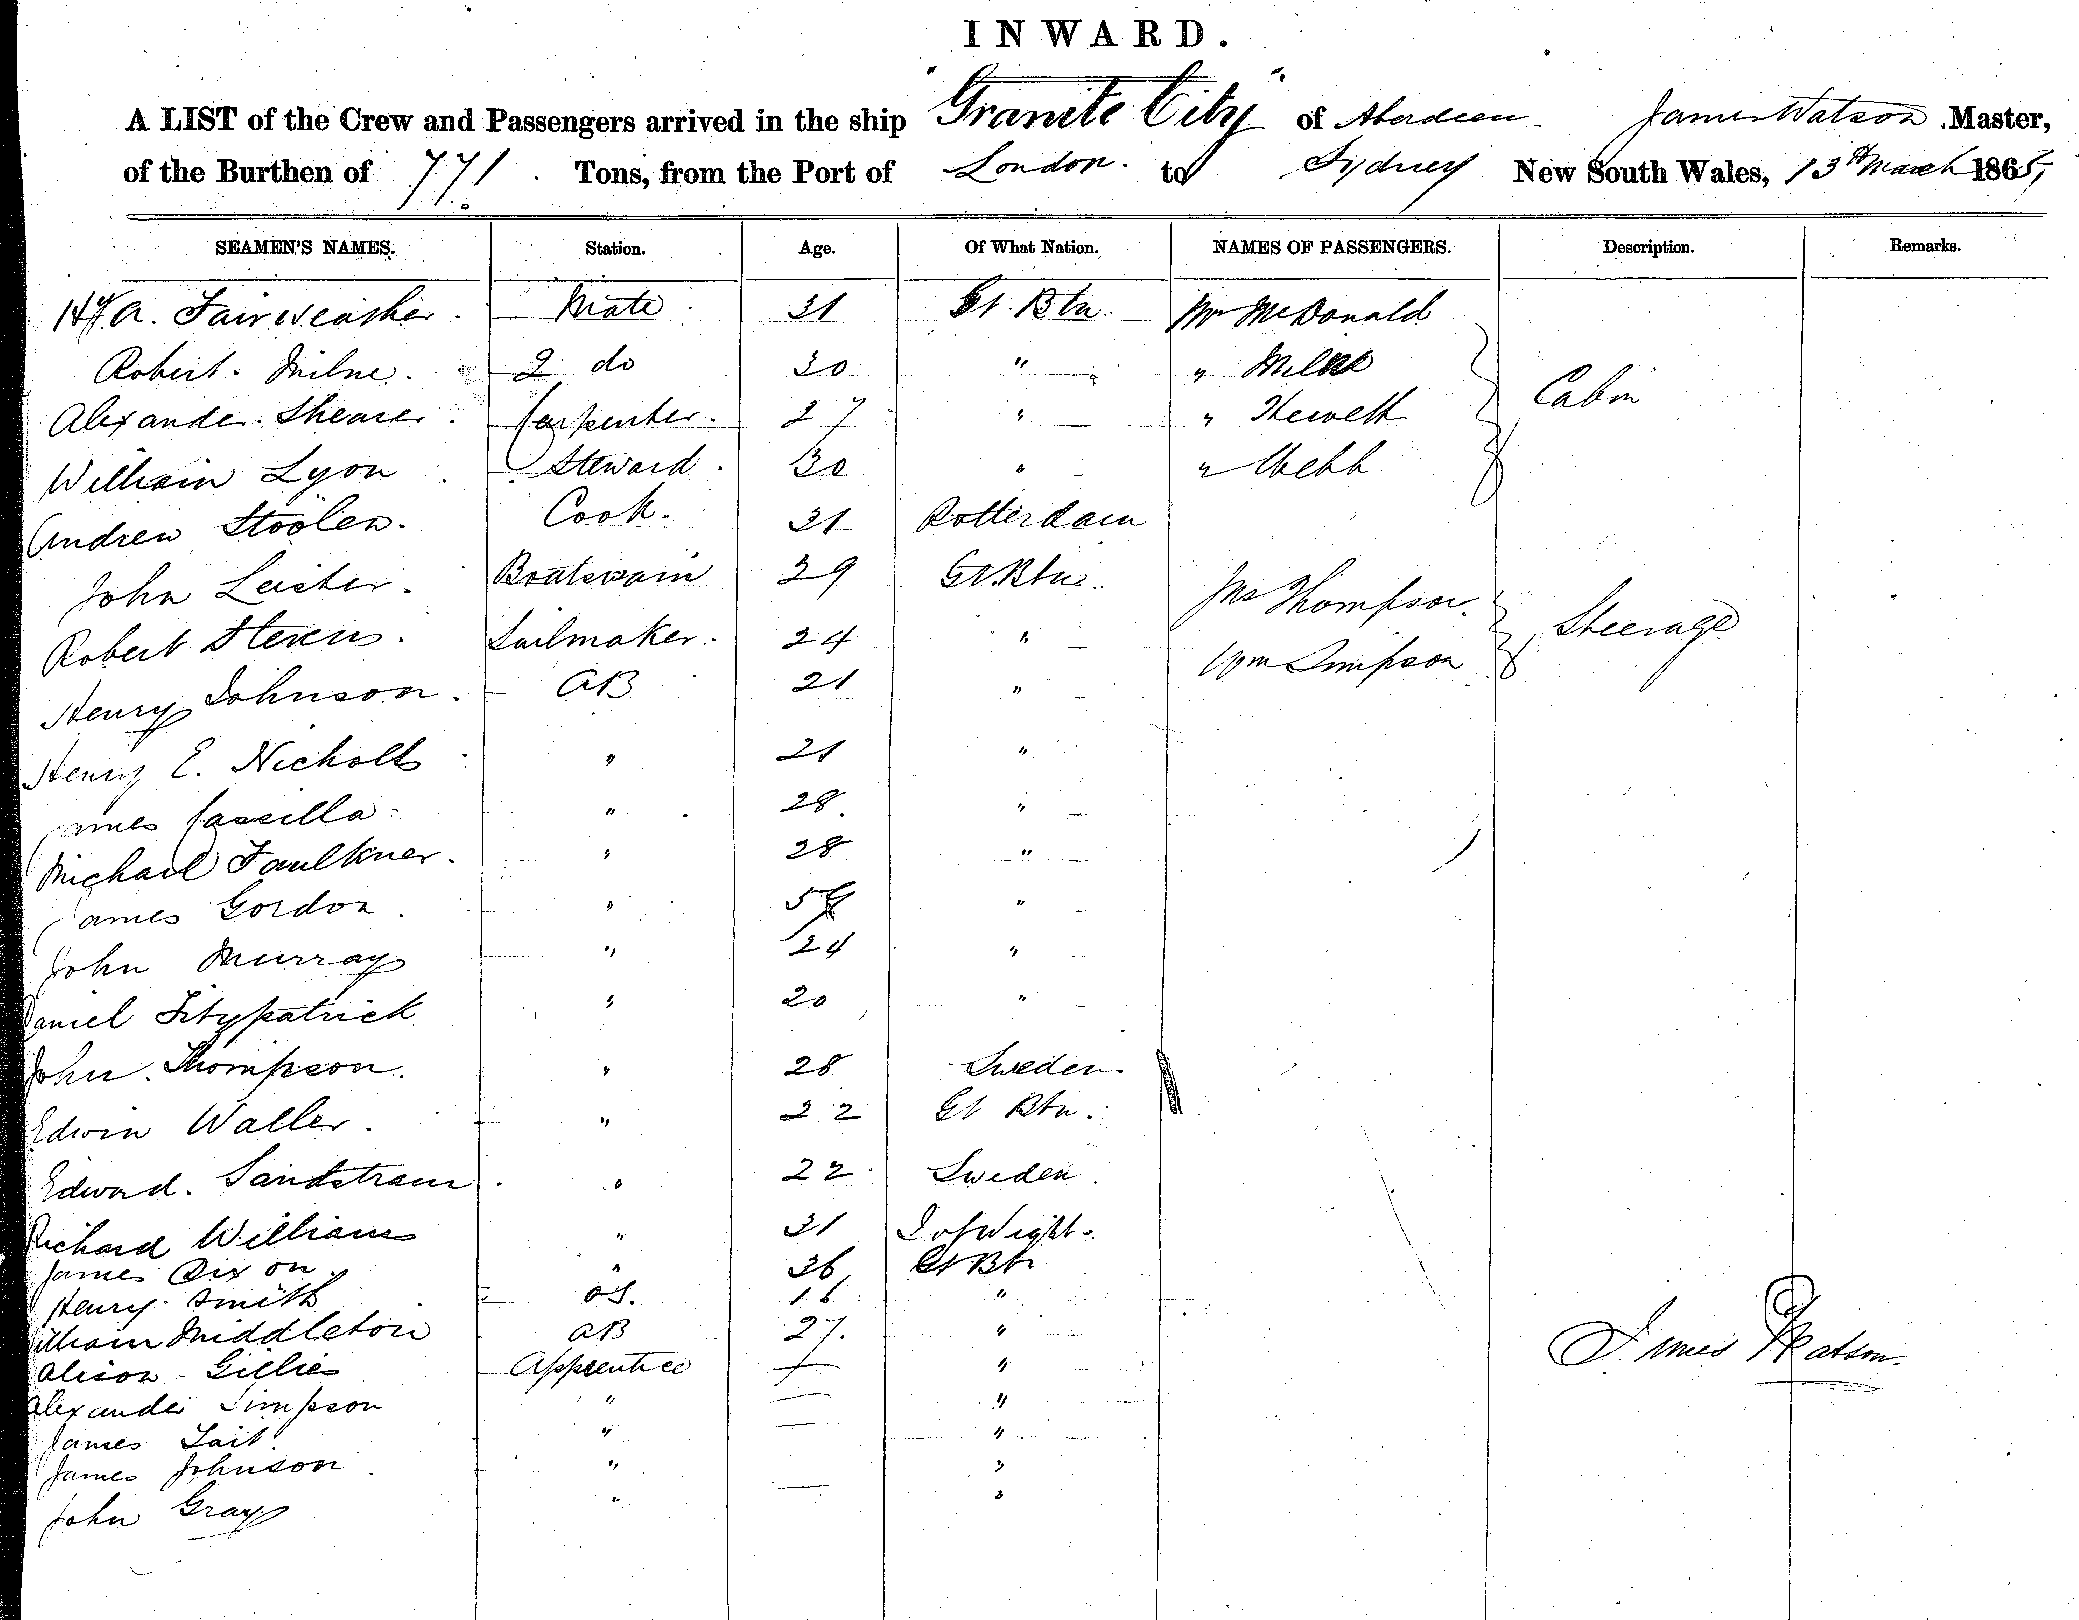 INWARD.
A LIST of the Crew and Passengers arrived in the ship "Granite City" of Aberdeen James Watson Master,
of the Burthen of 771 Tons, from the Port of London to Sydney New South Wales, 13th March 1865,
SEAMEN'S NAMES. Station. Age. Of What Nation. NAMES OF PASSENGERS. Description. Remarks.
A. Fairweather Mate 31 Gt. Btn. Mr McDonald
Robert Milne 2 do 30 " "
Alexander Shearer Carpenter 27 " " Hewett Cabin
William Lyon Steward 30 " " Webb
Andrew Stoolen Cook 31 Rotterdam
John Leister Boatswain 39 Gt. Btn.
Robert Steven Sailmaker 24 " Jas Thompson Steerage
Henry Johnson AB 21 " Wm Simpson
Henry E. Nicholls " 21 "
James Cassilla " 28 "
Michael Faulkner " 28 "
James Gordon " "
John Murray " 24 "
Daniel Fitzpatrick " 20 "
John Thompson " 28 Sweden
Edwin Waller " 22 Gt Btn.
Edward Sandstram " 22 Sweden
Richard Williams " 31 I of Wight
James Dixon " 36 Gt Btn
Henry Smith OS. 16 "
William Middleton AB 27 "
Alison Gillies Apprentice — "
Alexander Simpson " — "
James Tait " — "
James Johnson " "
John Gray " — "
James Watson